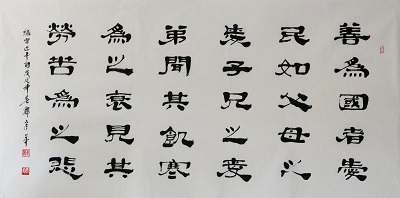 善為國者愛
民如父母之
愛子兄之愛
弟聞其飢寒
為之哀見其
勞苦為之悲